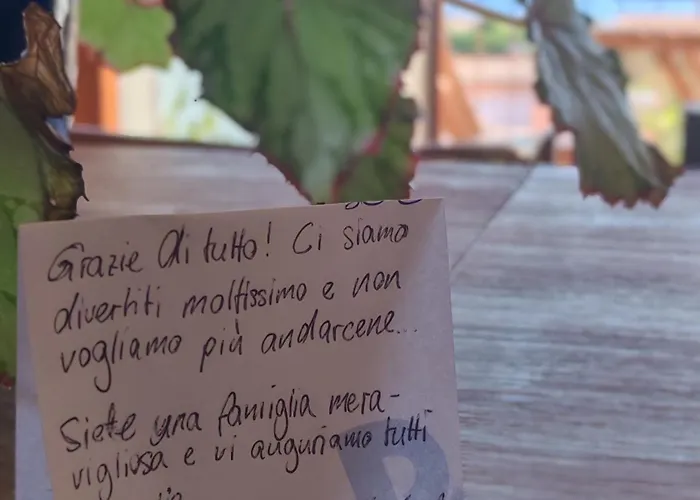 Grazie di tutto! Ci siamo
divertiti moltissimo e non
vogliamo più andarcene...
Siete una famiglia mera-
vigliosa e vi auguriamo tutti